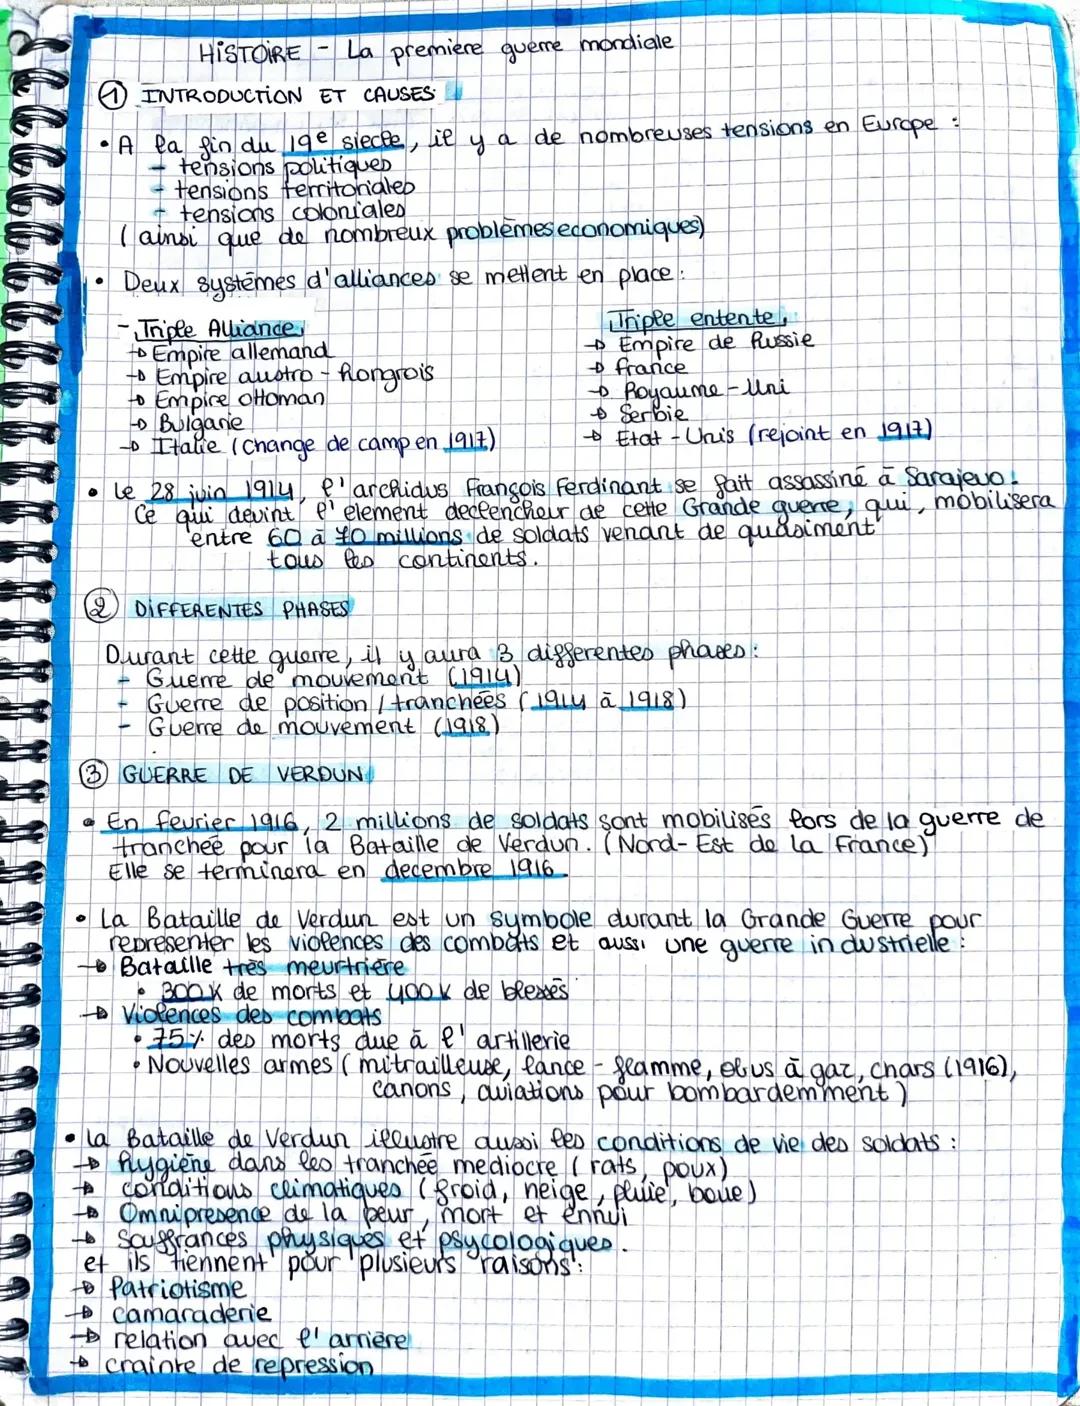 HISTOIRE - La premiere guerre mondiale
① INTRODUCTION ET CAUSES
• A la fin du 19e siecle, il y a de nombreuses tensions en Europe :
- tensions politiques
- tensions territoriales
- tensions coloniales
(ainsi que de nombreux problèmes economiques)
• Deux systèmes d'alliances se mettent en place :
- Triple Alliance
→ Empire allemand
→ Empire austro-hongrois
→ Empire ottoman
→ Bulgarie
→ Italie (change de camp en 1917)
Triple entente
→ Empire de Russie
→ france
→ Royaume-Uni
→ Serbie
→ Etat-Unis (rejoint en 1917)
• Le 28 juin 1914, l'archidus François Ferdinant se fait assassiné à Sarajevo.
Ce qui devint l'element declencheur de cette Grande guerre, qui, mobilisera
entre 60 à 70 millions de soldats venant de quasiment
tous les continents.
② DIFFERENTES PHASES
Durant cette guerre, il y aura 3 differentes phases :
- Guerre de mouvement (1914)
- Guerre de position / tranchées (1914 à 1918)
- Guerre de mouvement (1918)
③ GUERRE DE VERDUN
• En fevrier 1916, 2 millions de soldats sont mobilisés lors de la guerre de
tranchée pour la Bataille de Verdun. (Nord-Est de la France)
Elle se terminera en decembre 1916.
• La Bataille de Verdun est un symbole durant la Grande Guerre pour
representer les violences des combats et aussi une guerre industrielle :
→ Bataille très meurtrière
• 300k de morts et 400k de blessés
→ Violences des combats
• 75% des morts due à l'artillerie
• Nouvelles armes (mitrailleuse, lance-flamme, obus à gaz, chars (1916),
canons, aviations pour bombardemment)
• La Bataille de Verdun illustre aussi les conditions de vie des soldats :
→ hygiène dans les tranchée mediocre (rats, poux)
→ conditions climatiques (froid, neige, pluie, boue)
→ Omnipresence de la peur, mort et ennui
→ Souffrances physiques et psycologiques.
et ils tiennent pour plusieurs raisons :
→ Patriotisme
→ camaraderie
→ relation avec l'arrière
→ crainte de repression